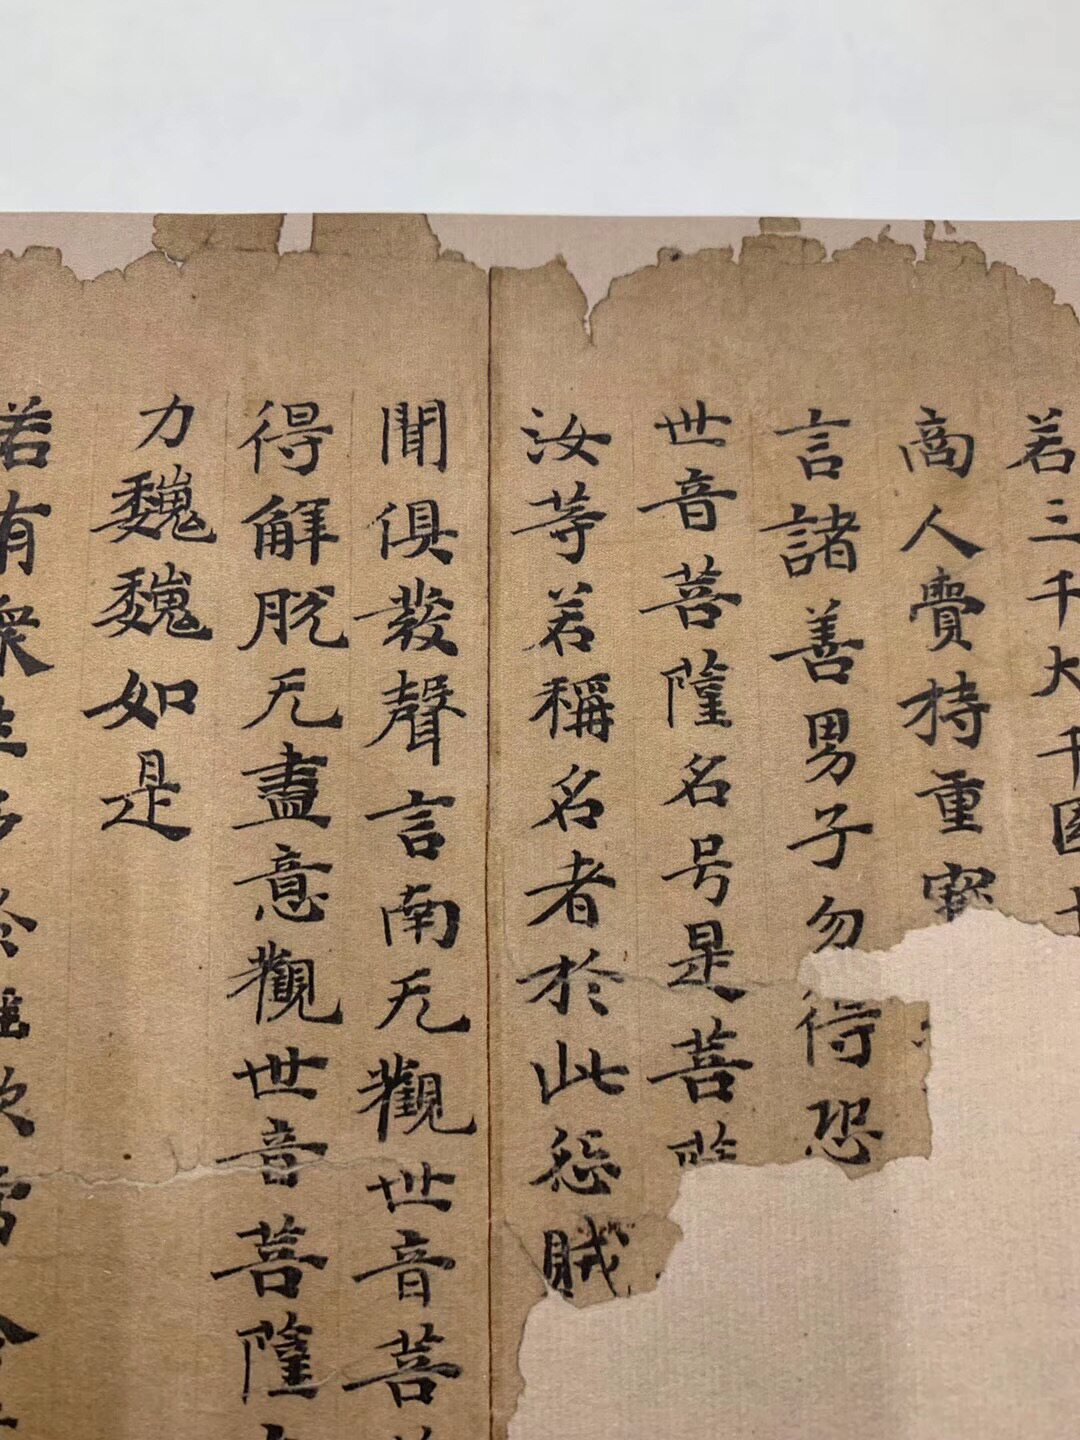 若三千大千国
商人賷持重寳
言諸善男子勿得恐
世音菩薩名号是菩
汝等若稱名者於此怨賊
聞俱發聲言南无觀世音菩
得解脫无盡意觀世音菩薩
力巍巍如是
若有衆生多於婬欲常念